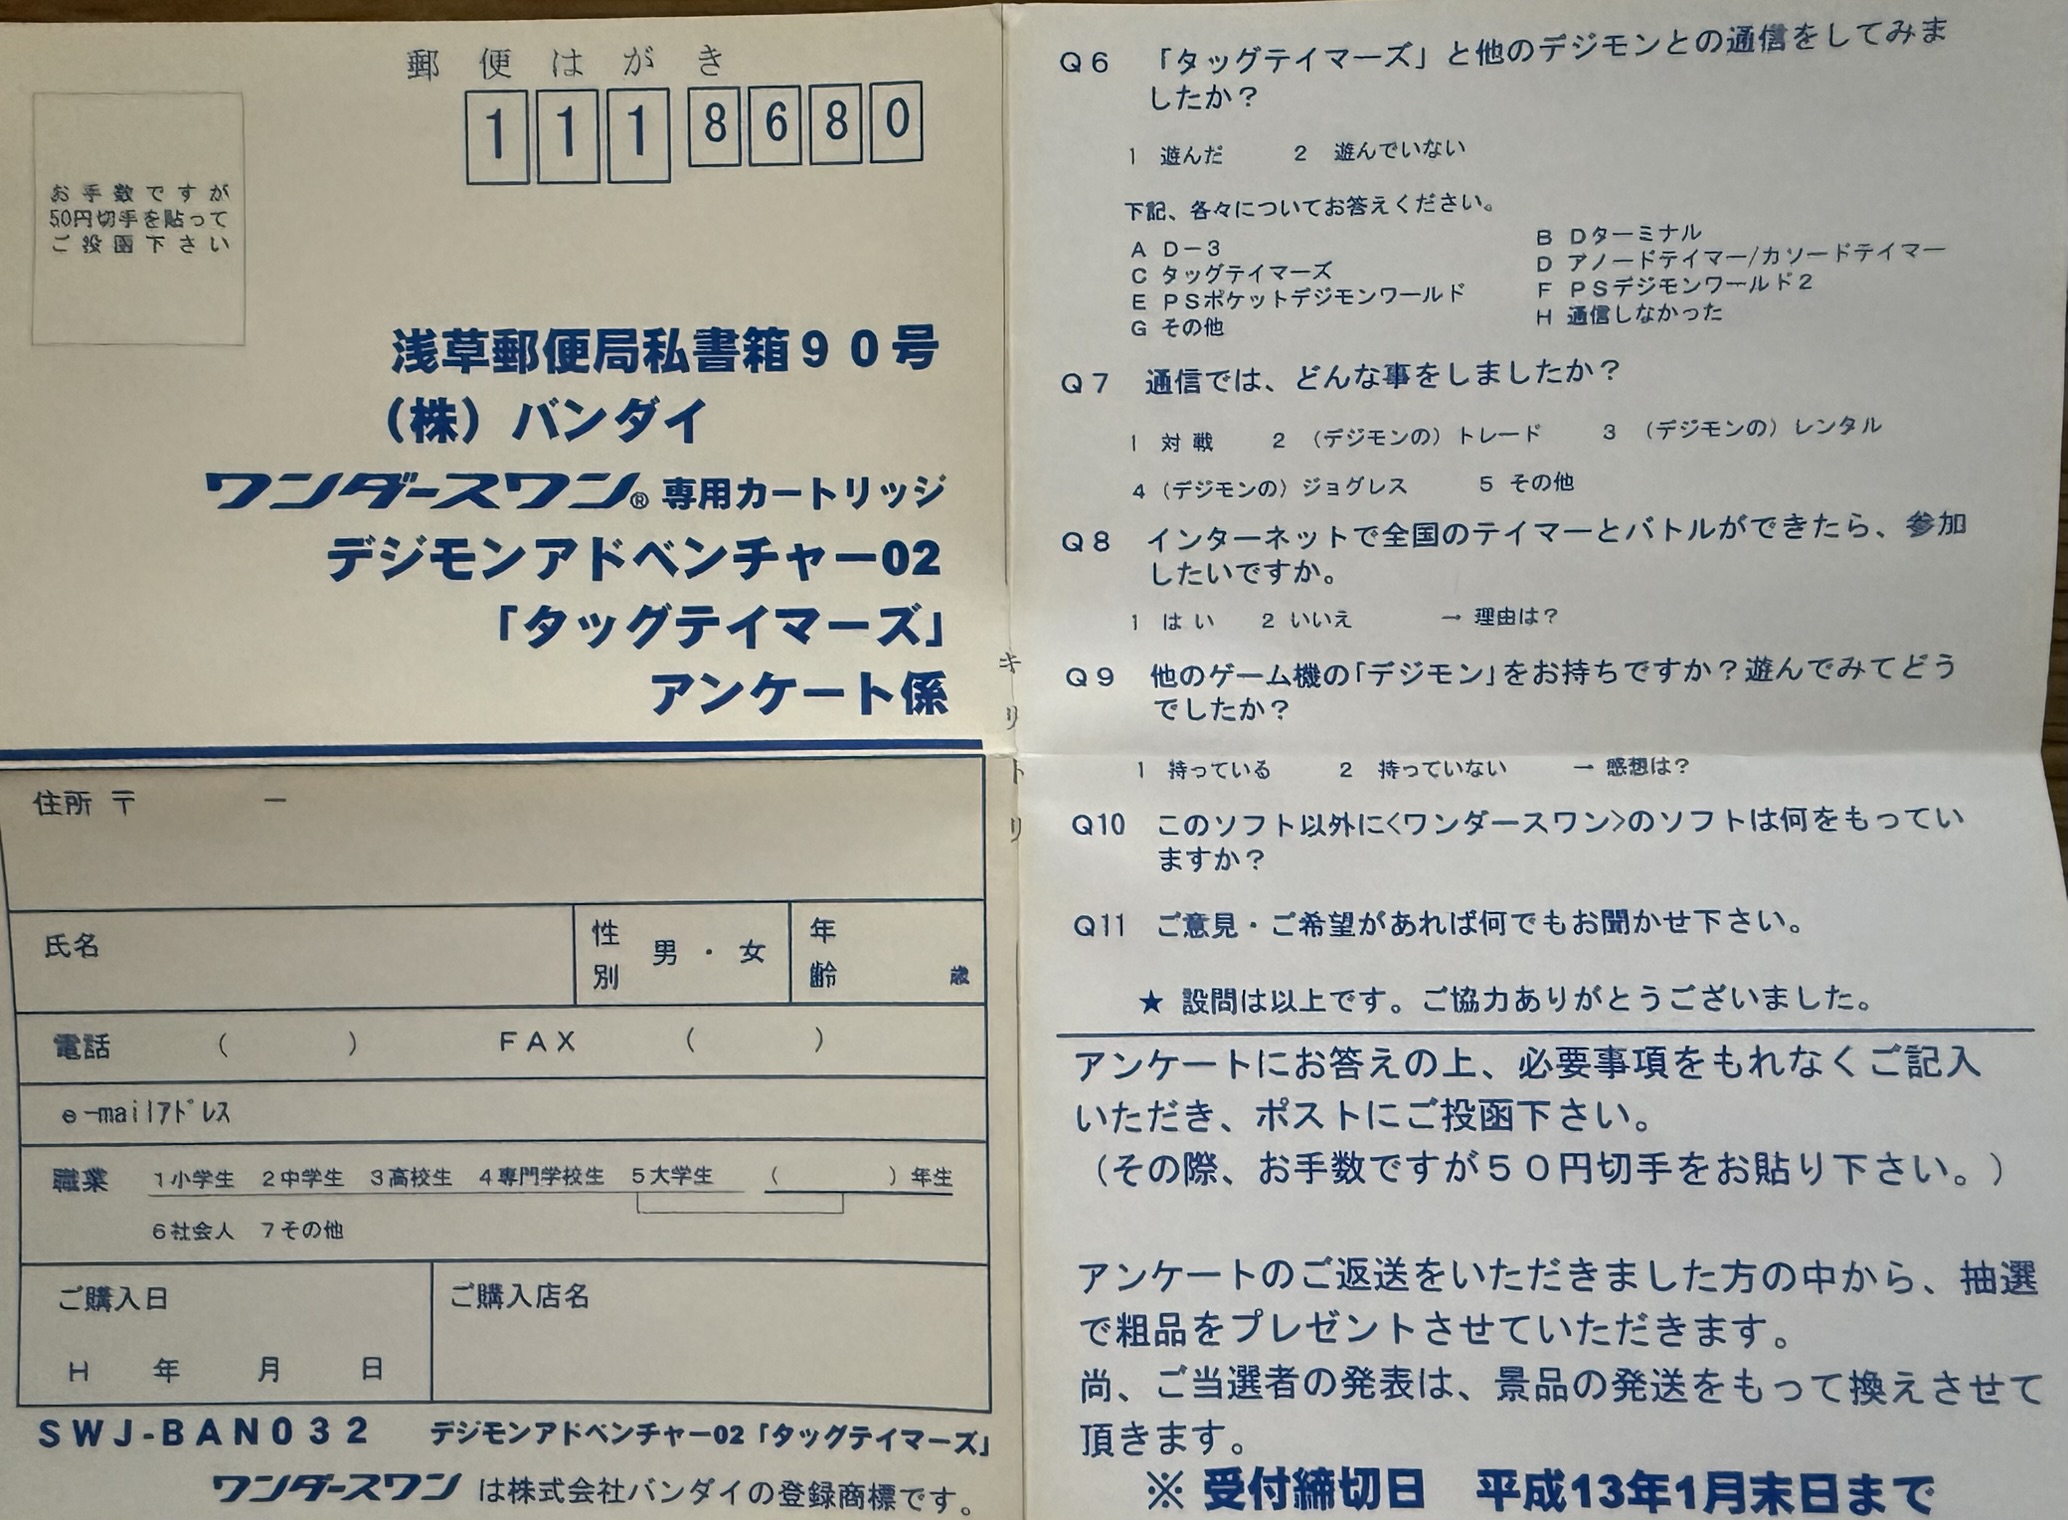 郵便はがき
1 1 1 8 6 8 0
お手数ですが
50円切手を貼って
ご投函下さい
浅草郵便局私書箱９０号
（株）バンダイ
ワンダースワン® 専用カートリッジ
デジモンアドベンチャー02
「タッグテイマーズ」
アンケート係
キリトリ
住所 〒　　　－
氏名
性別　男・女
年齢　　歳
電話　（　　　）　　ＦＡＸ　（　　　）
e-mailｱﾄﾞﾚｽ
職業　1小学生　2中学生　3高校生　4専門学校生　5大学生　（　　　）年生
6社会人　7その他
ご購入日
H　年　月　日
ご購入店名
SWJ-BAN032　デジモンアドベンチャー02「タッグテイマーズ」
ワンダースワン は株式会社バンダイの登録商標です。
Ｑ６　「タッグテイマーズ」と他のデジモンとの通信をしてみま
したか？
1　遊んだ　　2　遊んでいない
下記、各々についてお答えください。
Ａ Ｄ－３　　Ｂ Ｄターミナル
Ｃ タッグテイマーズ　　Ｄ アノードテイマー/カソードテイマー
Ｅ ＰＳポケットデジモンワールド　　Ｆ ＰＳデジモンワールド２
Ｇ その他　　Ｈ 通信しなかった
Ｑ７　通信では、どんな事をしましたか？
1　対戦　　2　（デジモンの）トレード　　3　（デジモンの）レンタル
4　（デジモンの）ジョグレス　　5　その他
Ｑ８　インターネットで全国のテイマーとバトルができたら、参加
したいですか。
1　はい　　2　いいえ　　→ 理由は？
Ｑ９　他のゲーム機の「デジモン」をお持ちですか？遊んでみてどう
でしたか？
1　持っている　　2　持っていない　　→ 感想は？
Ｑ10　このソフト以外に<ワンダースワン>のソフトは何をもってい
ますか？
Ｑ11　ご意見・ご希望があれば何でもお聞かせ下さい。
★ 設問は以上です。ご協力ありがとうございました。
アンケートにお答えの上、必要事項をもれなくご記入
いただき、ポストにご投函下さい。
（その際、お手数ですが５０円切手をお貼り下さい。）
アンケートのご返送をいただきました方の中から、抽選
で粗品をプレゼントさせていただきます。
尚、ご当選者の発表は、景品の発送をもって換えさせて
頂きます。
※ 受付締切日　平成13年1月末日まで